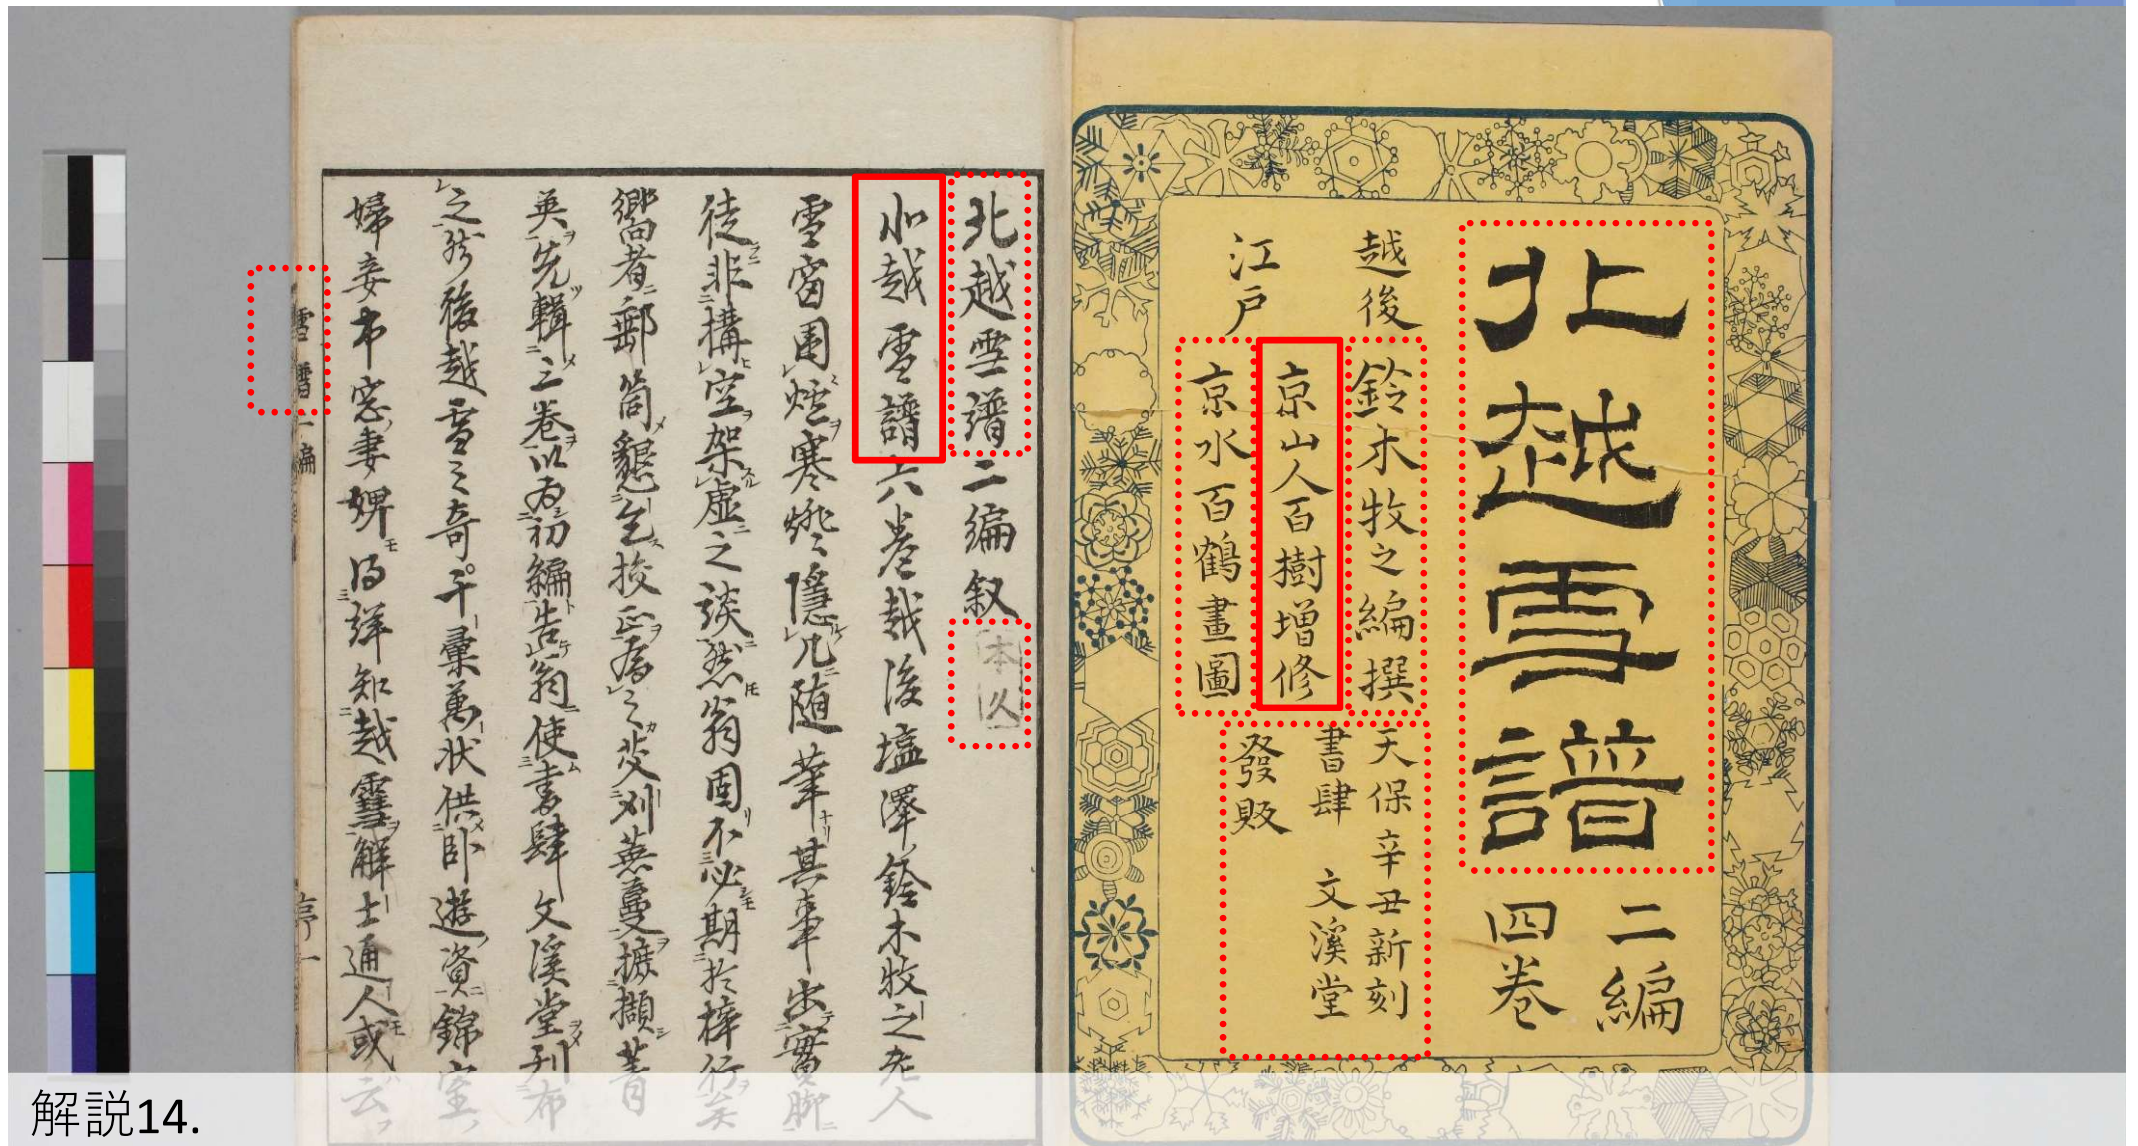 北越雪譜
二編
四巻
越後 鈴木牧之編撰
京山人百樹増修
江戸 京水百鶴畫圖
天保辛丑新刻
書肆 文溪堂
發販
北越雪譜二編叙
北越雪譜六巻越後塩澤鈴木牧之老人
雪窗圍爐寒燈隱几随筆其事出實脚
徒非搆空架虚之談然翁固不必期於梓行矣
嚮者郵筒懇乞挍正為之芟刈蕪蔓摭擷菁
英先輯三巻以為初編告翁使書肆文溪堂刊布
之於後越雪之奇千彙萬状供卧遊資錦室
婦妾市窓妻婢得詳知越雪解士通人或云
雪譜二編
序一
解説14.